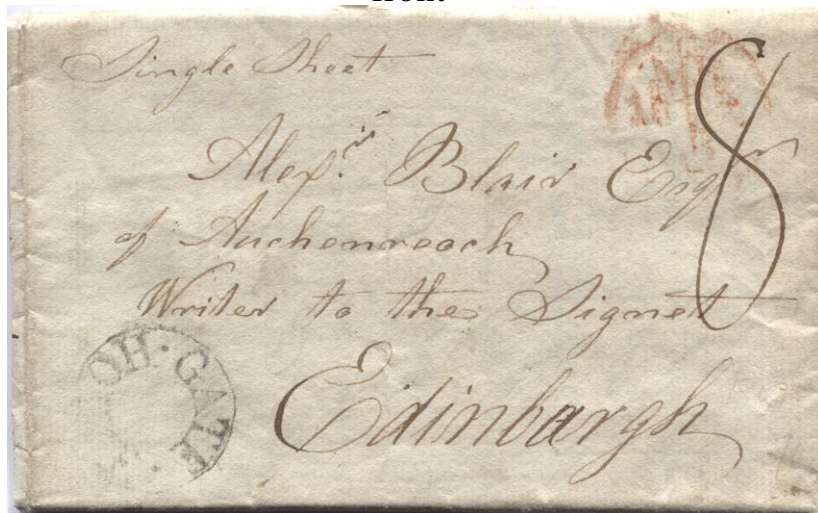 Single Sheet
8
Alexr. Blair Esqr
of Auchenreoch
Writer to the Signet
Edinburgh
OH·GATE